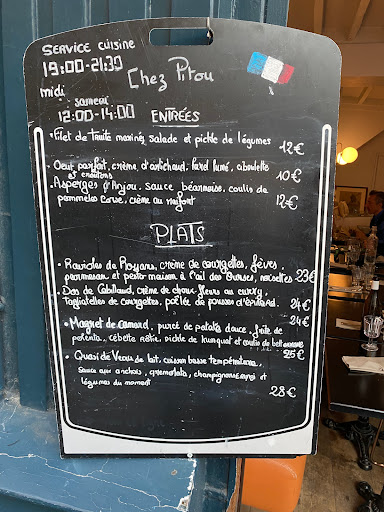 SERVICE CUISINE
19:00-21:30
Chez Pitou
midi
samedi
12:00-14:00
ENTRÉES
• Filet de truite marinée, salade et pickle de légumes 12€
Oeuf parfait, crème d'artichaud, lard fumé, ciboulette
et croutons 10€
• Asperges d'Anjou, sauce béarnaise, coulis de
pommeles Corse, crème au raifort 12€
PLATS
• Ravioles de Royans, crème de courgettes, fèves,
parmesan et pesto maison à l'ail des ourses, noisettes 23€
• Dos de Cabillaud, crème de choux-fleurs au curry,
Tagliatelles de courgettes, poêlée de pousses d'épinard. 24€
24€
• Magret de canard, purée de patate douce, frite de
polenta, cébette rôtie, pickle de kumquat et coulis de betteraves
25€
• Quasi de Veau de lait, cuisson basse température,
sauce aux anchois, gremolata, champignons et
légumes du moment
28€